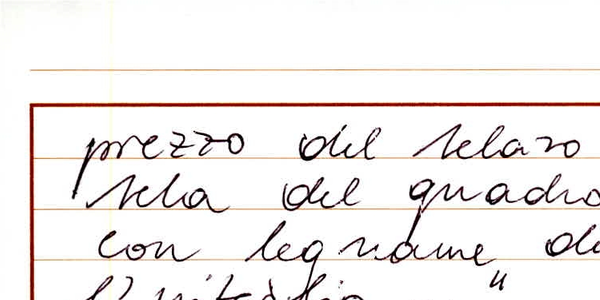 prezzo del telaro
tela del quadro
con legname" di